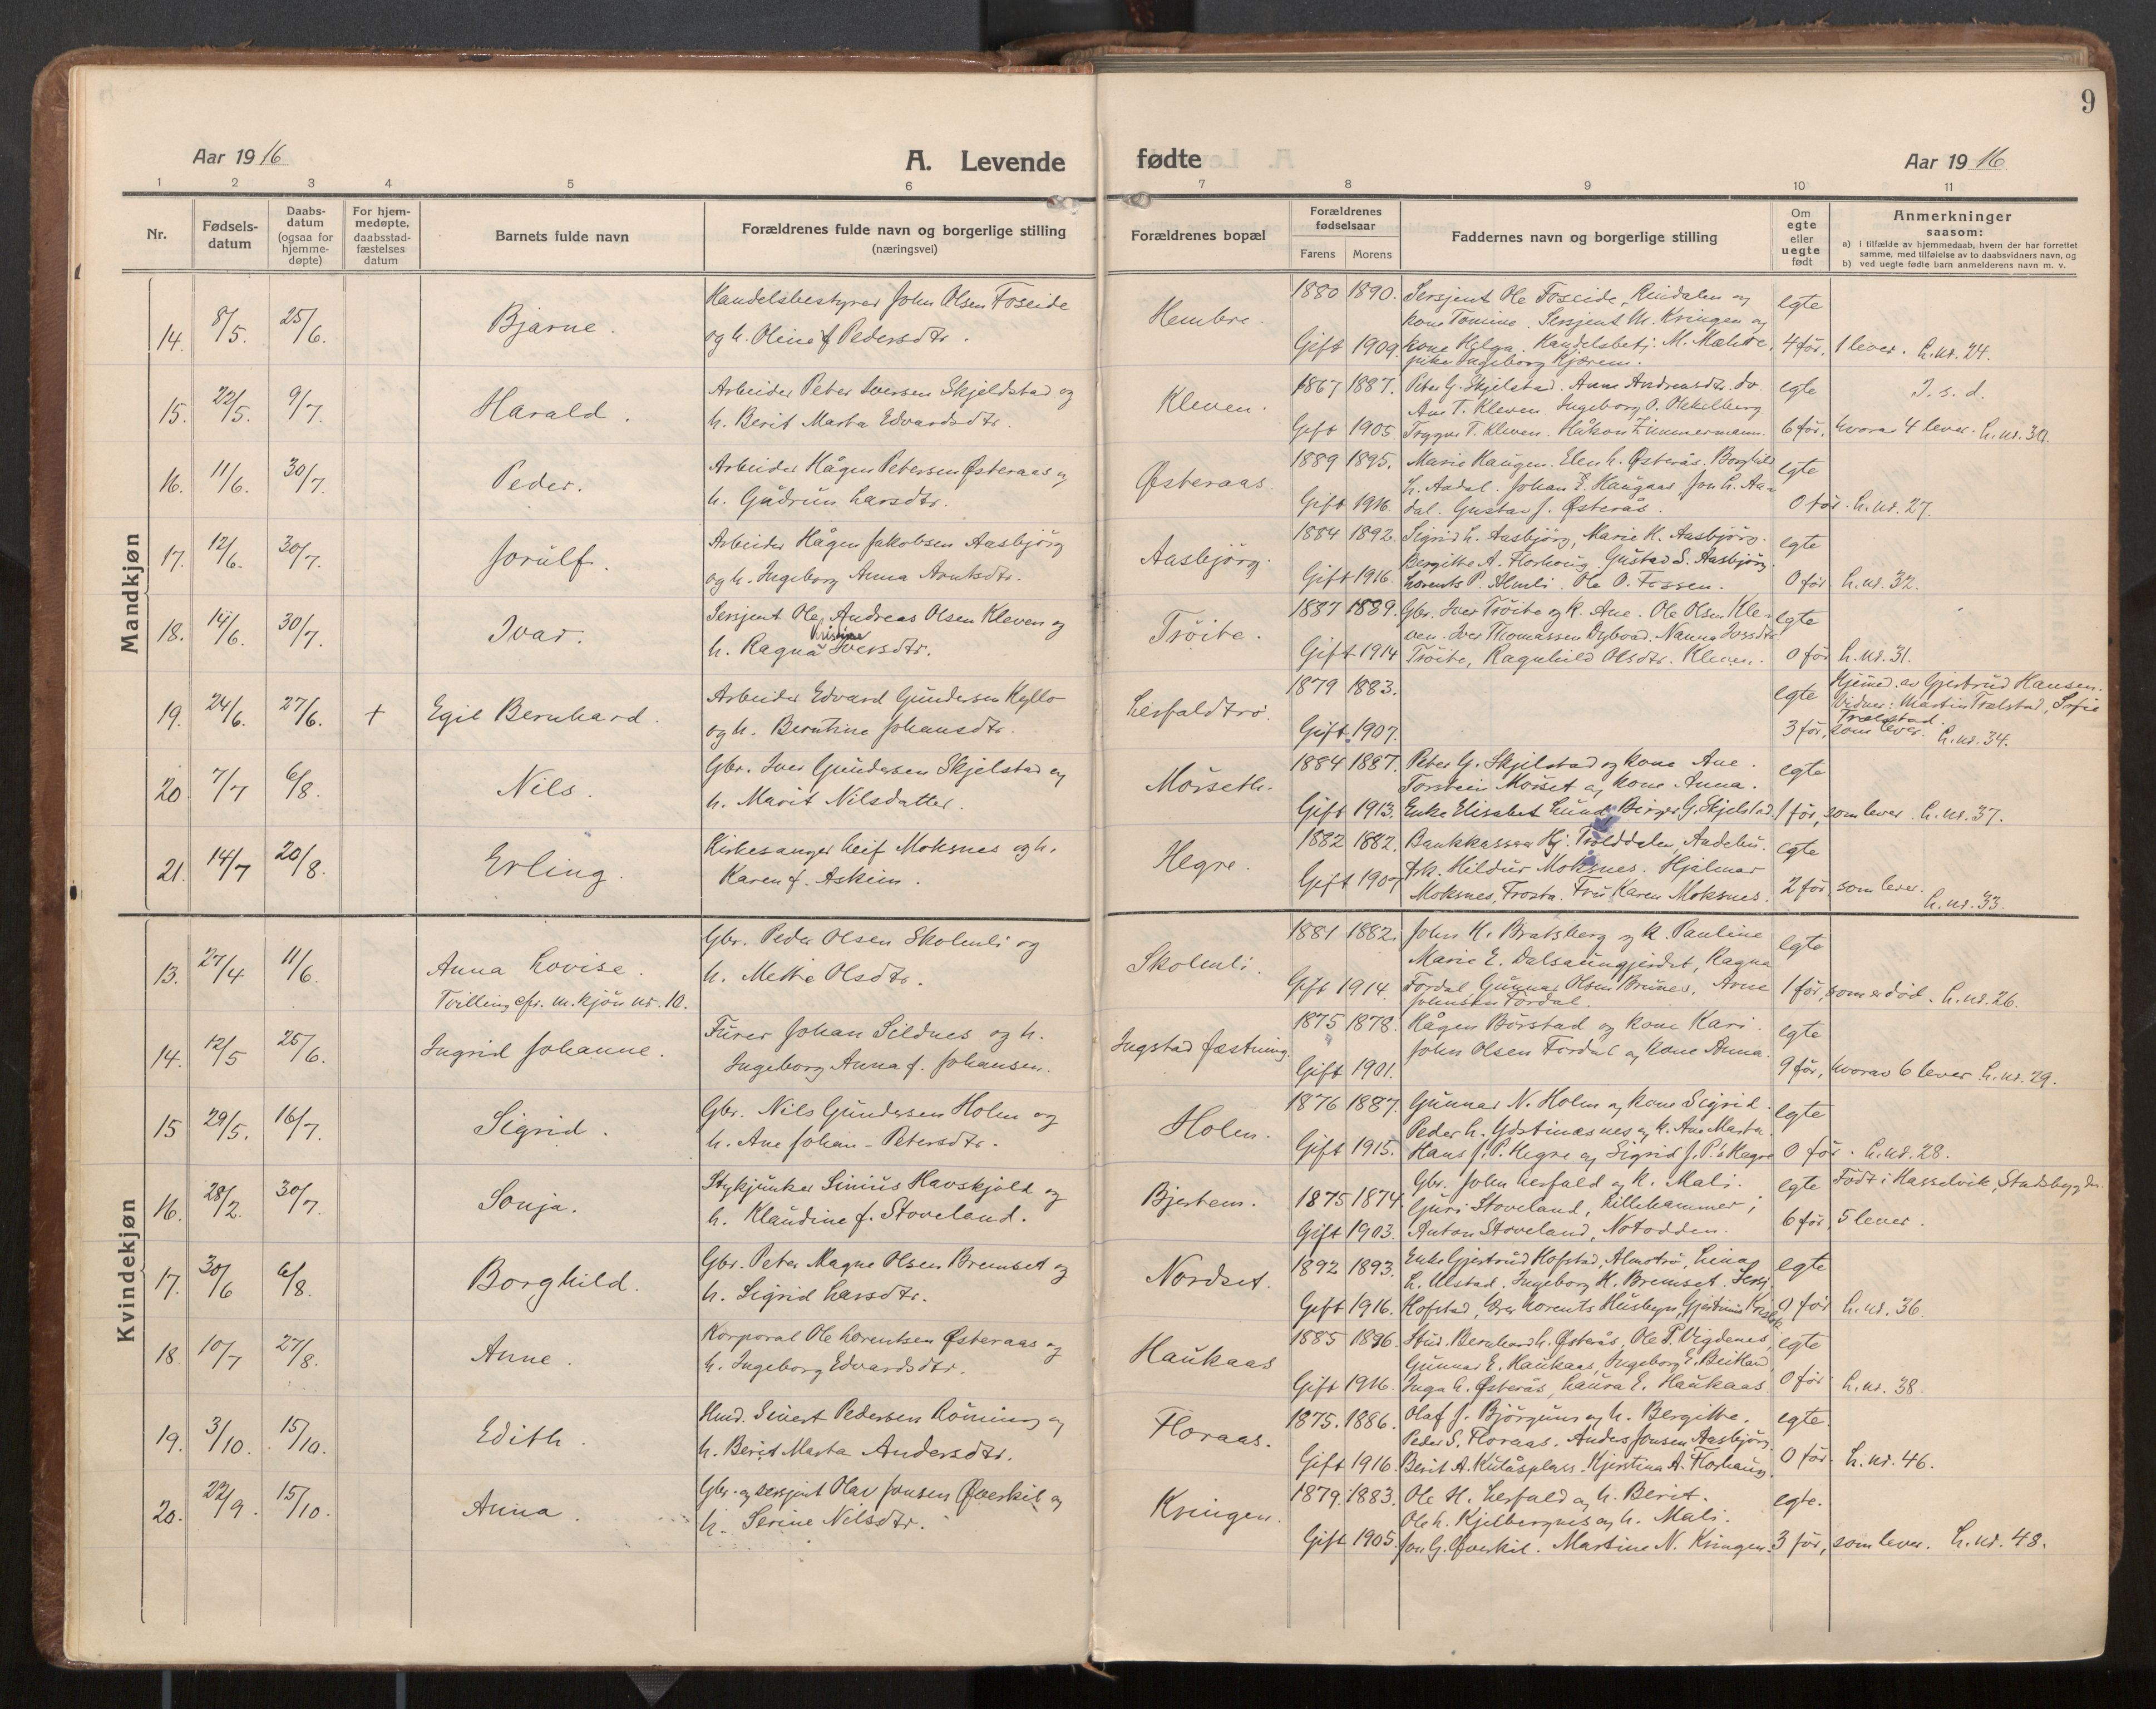 9
Aar 1916
A. Levende fødte
Aar 1916
1 2 3 4 5 6 7 8 9 10 11
Nr.
Fødsels-
datum
Daabs-
datum
(ogsaa for
hjemme-
døpte)
For hjem-
medøpte,
daabsstad-
fæstelses
datum
Barnets fulde navn
Forældrenes fulde navn og borgerlige stilling
(næringsvei)
Forældrenes bopæl
Forældrenes
fødselsaar
Farens Morens
Faddernes navn og borgerlige stilling
Om
egte
eller
uegte
født
Anmerkninger
saasom:
a) i tilfælde av hjemmedaab, hvem der har forrettet
samme, med tilføielse av to daabsvidners navn, og
b) ved uegte fødte barn anmelderens navn m. v.
Mandkjøn
14. 8/5. 25/6. Bjarne.
Handelsbestyrer John Olsen Foseide
og h. Oline f Pedersdtr.
Hembre.
1880 1890. Gift 1909.
Sersjent Ole Foseide, Rindalen og
kone Tomine. Sersjent M. Kringen og
kone Helga. Handelsbetj. M. Mæhle,
pike Ingeborg Kjærem.
egte
4 før, 1 lever. L.nr. 24.
15. 22/5. 9/7. Harald.
Arbeider Peter Iversen Skjeldstad og
h. Berit Marta Edvardsdtr.
Kleven.
1867 1887. Gift 1905.
Peter G. Skjelstad. Anne Andreasdtr. do.
Ane T. Kleven. Ingeborg O. Okkelberg.
Trygve T. Kleven. Håkon Zimmermann.
egte T. s. d.
6 før, hvorav 4 lever. L.nr. 30.
16. 11/6. 30/7. Peder.
Arbeider Hågen Petersen Østeraas og
h. Gudrun Larsdtr.
Østeraas.
1889 1895. Gift 1916.
Marie Haugen. Elen L. Østerås. Borghild
L. Aadal. Johan E. Haugaas, Jon L. Aa-
dal. Gustav J. Østerås.
egte
0 før. L.nr. 27.
17. 12/6. 30/7. Jorulf.
Arbeider Hågen Jakobsen Aasbjörg
og h. Ingeborg Anna Arntsdtr.
Aasbjörg.
1884 1892. Gift 1916.
Sigrid L. Aasbjörg, Marie K. Aasbjörg.
Bergitte A. Florhoug. Gustad S. Aasbjörg.
Lorents P. Almli. Ole O. Fossen.
egte
0 før L.nr. 32.
18. 14/6. 30/7. Ivar.
Sersjent Ole Andreas Olsen Kleven og
Kristine
h. Ragna Iversdtr.
Tröite.
1887 1889. Gift 1914
Gbr. Iver Tröite og k. Ane. Ole Olsen Kle-
ven. Iver Thomassen Dybvad. Nanna Iversdtr.
Tröite, Ragnhild Olsdtr. Kleven.
egte
0 før L.nr. 31.
19. 24/6. 27/6. + Egil Bernhard.
Arbeider Edvard Gundersen Kyllo
og h. Berntine Johansdtr.
Lerfaldtrö.
1879 1883. Gift 1907.
egte
Hjemd. av Gjertrud Hansen.
Vidner: Martin Trælstad, Sofie
Trælstad.
3 før, som lever. L.nr. 34.
20 7/7 6/8. Nils.
Gbr. Iver Gundersen Skjelstad og
h. Marit Nilsdatter.
Mörseth.
1884 1887. Gift 1913.
Peter G. Skjelstad og kone Ane.
Torstein Mörset og kone Anna.
Enke Elisabet Lund, Birger G. Skjelstad.
egte
1 før, som lever. L.nr. 37.
21. 14/7 20/8. Erling.
Kirkesanger Leif Moksnes og h.
Karen f. Askim.
Hegre.
1882 1882. Gift 1907
Bankkasserer Hj. Trölddalen, Aadebu.
Frk. Hildur Moksnes. Hjalmar
Moksnes, Frosta. Fru Karen Moksnes.
egte
2 før, som lever.
L.nr. 33.
Kvindekjøn
13. 27/4 11/6. Anna Lovise.
Tvilling cfr. m.kjön nr. 10.
Gbr. Peder Olsen Skolmli og
h. Mette Olsdtr.
Skolmli.
1881 1882. Gift 1914.
John K. Bratsberg og k. Pauline
Marie E. Dalsaungjerdet, Ragna
Fordal, Gunnar Olsen Brunes, Arne
Johnsen Fordal.
egte
1 før, som er död. L.nr. 26.
14. 12/5 25/6. Ingrid Johanne.
Furer Johan Sildnes og h.
Ingeborg Anna f. Johansen.
Ingstad fæstning.
1875 1878. Gift 1901.
Hågen Börstad og kone Kari.
John Olsen Fordal og kone Anna.
egte
9 før, hvorav 6 lever. L.nr. 29.
15 29/5. 16/7. Sigrid.
Gbr. Nils Gundersen Holm og
h. Ane Johan-Petersdtr.
Holm.
1876 1887. Gift 1915.
Gunnar N. Holm og kone Sigrid.
Peder L. Gjøstinæsnes og k. Ane Marta.
Hans J. P. Hegre og Sigrid J. P.'s Hegre
egte
0 før. L.nr. 28.
16. 28/2. 30/7. Sonja.
Stykjunker Sinius Havskjold og
h. Klaudine f. Stoveland.
Bjertem.
1875 1874 Gift 1903.
Gbr. John Lerfald og k. Mali.
Guri Stoveland, Lillehammer;
Anton Stoveland, Notodden.
egte Född i Hasselvik, Stadsbygden.
6 før, 5 lever.
17. 30/6 6/8. Borghild.
Gbr. Peter Magne Olsen Bremset og
h. Sigrid Larsdtr.
Nordset.
1892 1893. Gift 1916.
Enke Gjertrud Hofstad, Almotrö, Lina
L. Ulstad. Ingeborg H. Bremset. Sersj.
Hofstad, Lorents Husbyn,
egte
0 før L.nr. 36
18. 10/7 27/8. Anne.
Korporal Ole Lorentsen Østeraas og
h. Ingeborg Edvardsdtr.
Haukaas
1885 1896. Gift 1916.
Stud. Bernhard L. Østerås, Ole P. Vigdenes,
Gunnar E. Haukaas, Ingeborg E. Beitland,
Inga L. Østerås, Laura E. Haukaas.
egte
0 før L.nr. 38.
19. 3/10. 15/10. Edith.
Hmd. Sivert Pedersen Röming og
h. Berit Marta Andersdtr.
Floraas.
1875. 1886. Gift 1916.
Olaf J. Björgum og h. Bergitte.
Peder S. Floraas. Anders Jonsen Aasbjörg.
Berit A. Kulåsplass. Kjerstina A. Florhaug.
egte.
0 før. L.nr. 46.
20. 22/9. 15/10. Anna.
Gbr. og sersjent Olav Jonsen Øverkil og
h. Serine Nilsdtr.
Kringen.
1879. 1883. Gift 1905.
Ole H. Lerfald og h. Berit.
Ole L. Kjelbergnes og h. Mali.
Jon G. Øverkil. Martine N. Kringen.
egte.
3 før, som lever. L.nr. 48.